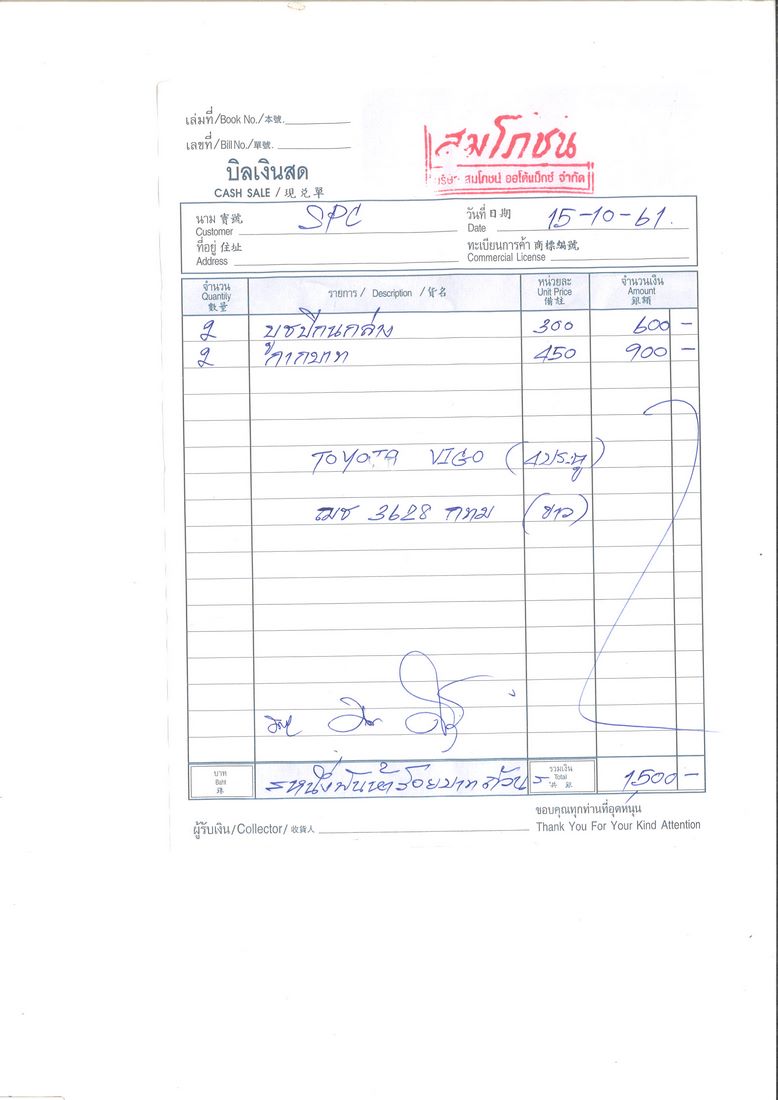 เล่มที่/Book No./本號.
เลขที่/Bill No./單號.
สมโภชน์
บริษัท สมโภชน์ ออโต้แม็กซ์ จำกัด
บิลเงินสด
CASH SALE / 現兑單
นาม 寶號 Customer SPC วันที่ 日期 Date 15-10-61.
ที่อยู่ 住址 Address ทะเบียนการค้า 商標編號 Commercial License
จำนวน Quantity 數量 รายการ / Description / 貨名 หน่วยละ Unit Price 備註 จำนวนเงิน Amount 銀額
2 บูชปีกนกล่าง 300 600 –
2 กากบาท 450 900 –
TOYOTA VIGO (4ประตู)
ฒช 3628 กทม (ขาว)
บาท Baht 銖 =หนึ่งพันห้าร้อยบาทถ้วน= รวมเงิน Total 共銀 1,500 –
ขอบคุณทุกท่านที่อุดหนุน
ผู้รับเงิน/Collector/收貨人 Thank You For Your Kind Attention